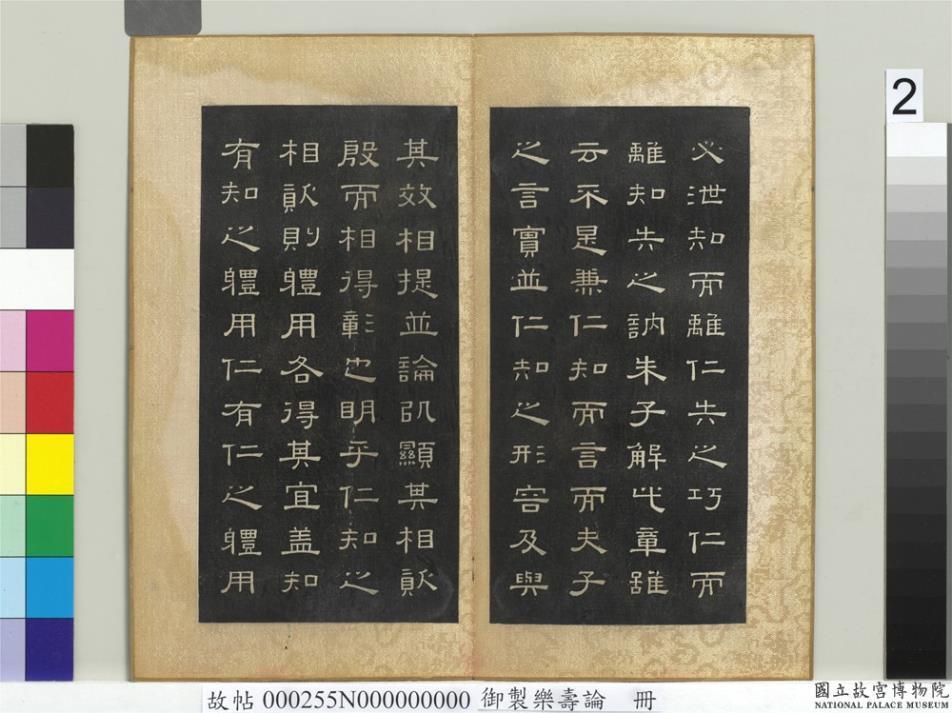 必泄知而離仁失之巧仁而
離知失之訥朱子解此章雖
云不是兼仁知而言而夫子
之言實並仁知之形容及與
其效相提並論以顯其相
殷而相得彰也明乎仁知之
相則體用各得其宜蓋知
有知之體用仁有仁之體用
2
故帖 000255N000000000 御製樂壽論 冊
國立故宮博物院
NATIONAL PALACE MUSEUM